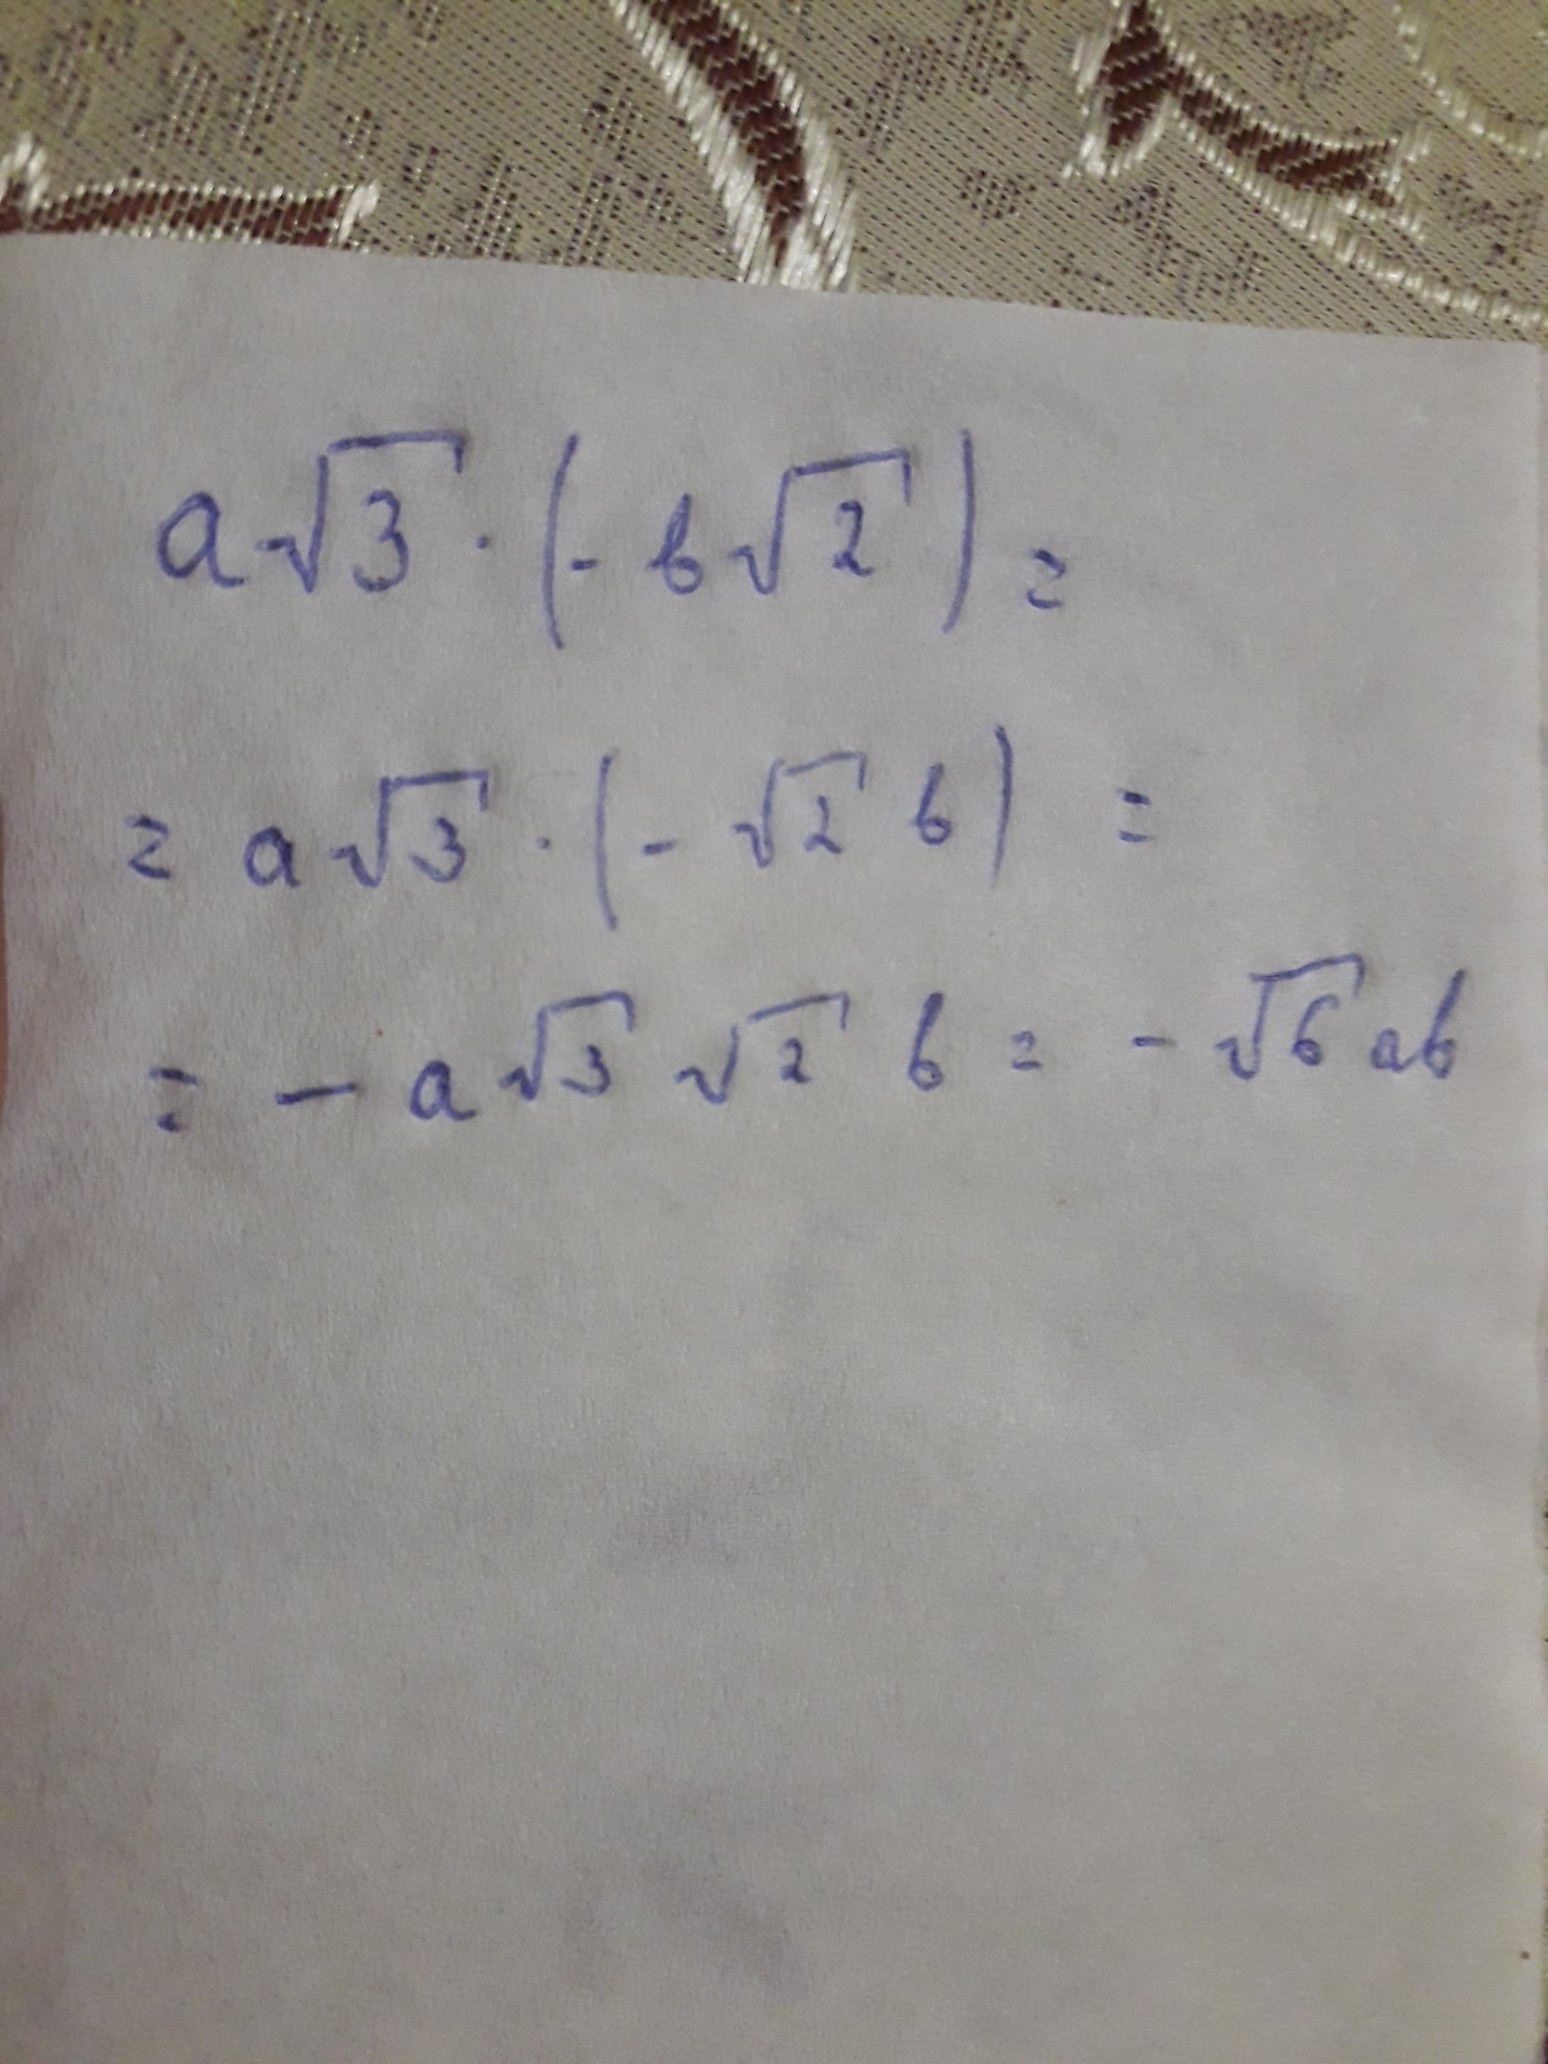 a√3 · (- b√2) =
= a√3 · (- √2 b) =
= - a√3 √2 b = - √6 ab